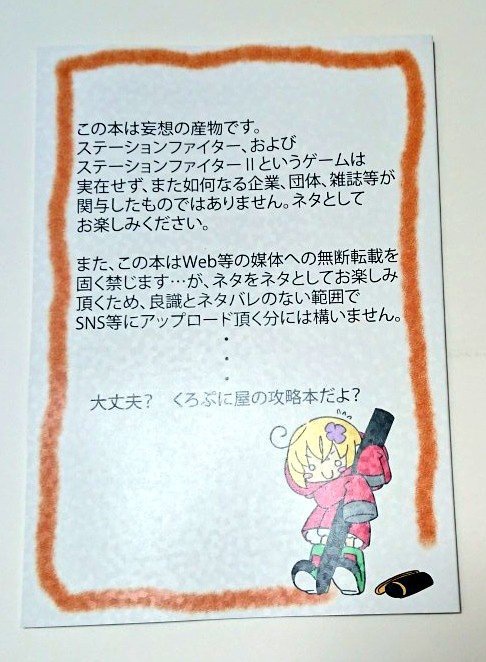 この本は妄想の産物です。
ステーションファイター、および
ステーションファイターⅡというゲームは
実在せず、また如何なる企業、団体、雑誌等が
関与したものではありません。ネタとして
お楽しみください。
また、この本はWeb等の媒体への無断転載を
固く禁じます…が、ネタをネタとしてお楽しみ
頂くため、良識とネタバレのない範囲で
SNS等にアップロード頂く分には構いません。
・
・
・
大丈夫？　くろぷに屋の攻略本だよ？